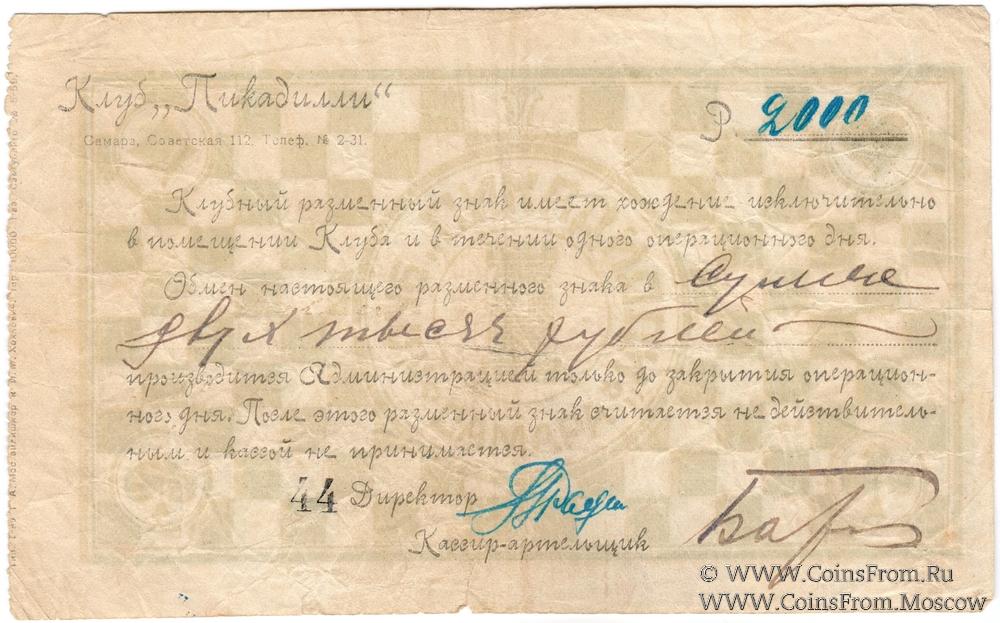 Клуб „Пикадилли“
Р. 2000
Самара, Советская 112. Телеф. № 2-31.
Клубный разменный знак имеет хождение исключительно
в помещении Клуба и в течении одного операционного дня.
Обмен настоящего разменного знака в сумме
двух тысяч рублей
производится Администрацией только до закрытия операцион-
ного дня. После этого разменный знак считается не действитель-
ным и кассой не принимается.
44 Директор
Кассир-артельщик
© WWW.CoinsFrom.Ru
WWW.CoinsFrom.Moscow